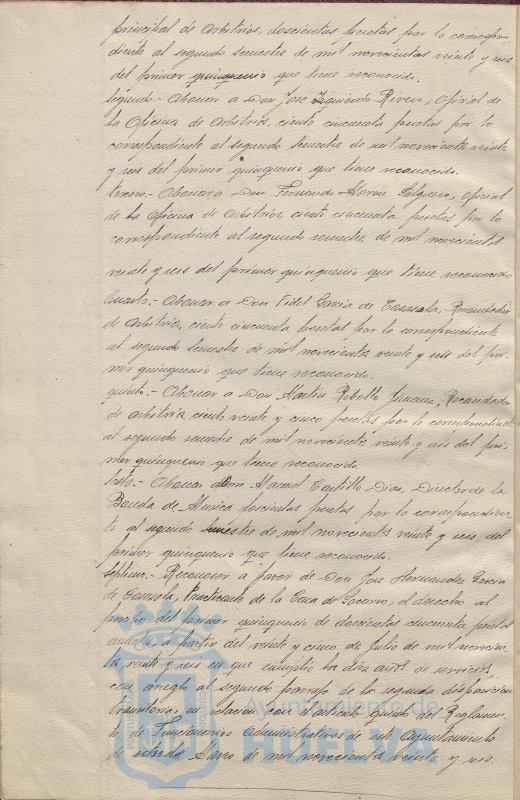 principal de Arbitrios, doscientas pesetas por lo correspon-
diente al segundo semestre de mil novecientos veinte y seis
del primer quinquenio que tiene reconocido.
Segundo.- Abonar a Don Jose Izquierdo Rivero, Oficial de
la Oficina de Arbitrios, ciento cincuenta pesetas por lo
correspondiente al segundo semestre de mil novecientos veinte
y seis del primer quinquenio que tiene reconocido.
tercero.- Abonar a Don Fernando Moron Salguero, oficial
de la Oficina de Arbitrios, ciento cincuenta pesetas por lo
correspondiente al segundo semestre de mil novecientos
veinte y seis del primer quinquenio que tiene reconocido
Cuarto.- Abonar a Don Fidel Garcia de Recaudador
de Arbitrios, ciento cincuenta pesetas por lo correspondiente
al segundo semestre de mil novecientos veinte y seis del pri-
mer quinquenio que tiene reconocido.
quinto.- Abonar a Don Martin Rebollo Jimenez, Recaudador
de Arbitrios, ciento veinte y cinco pesetas por lo correspondiente
al segundo semestre de mil novecientos veinte y seis del pri-
mer quinquenio que tiene reconocido.
Sexto.- Abonar a Don Manuel Castillo Diaz, Director de la
Banda de Musica pesetas por lo correspondien-
te al segundo semestre de mil novecientos veinte y seis, del
primer quinquenio que tiene reconocido.
Septimo.- Reconocer a favor de Don Jose Hernandez Garcia
de Practicante de la Casa de Socorro, el derecho al
percibo del primer quinquenio de doscientas cincuenta pesetas
anuales, a partir del veinte y cinco de Julio de mil novecien-
tos veinte y seis en que cumplio los diez años de servicios
con arreglo al segundo parrafo de la segunda disposicion
transitoria, en relacion con el articulo quinto del Reglamen-
to de Funcionarios Administrativos de este Ayuntamiento
de Marzo de mil novecientos veinte y seis.
Ayuntamiento de
HUELVA